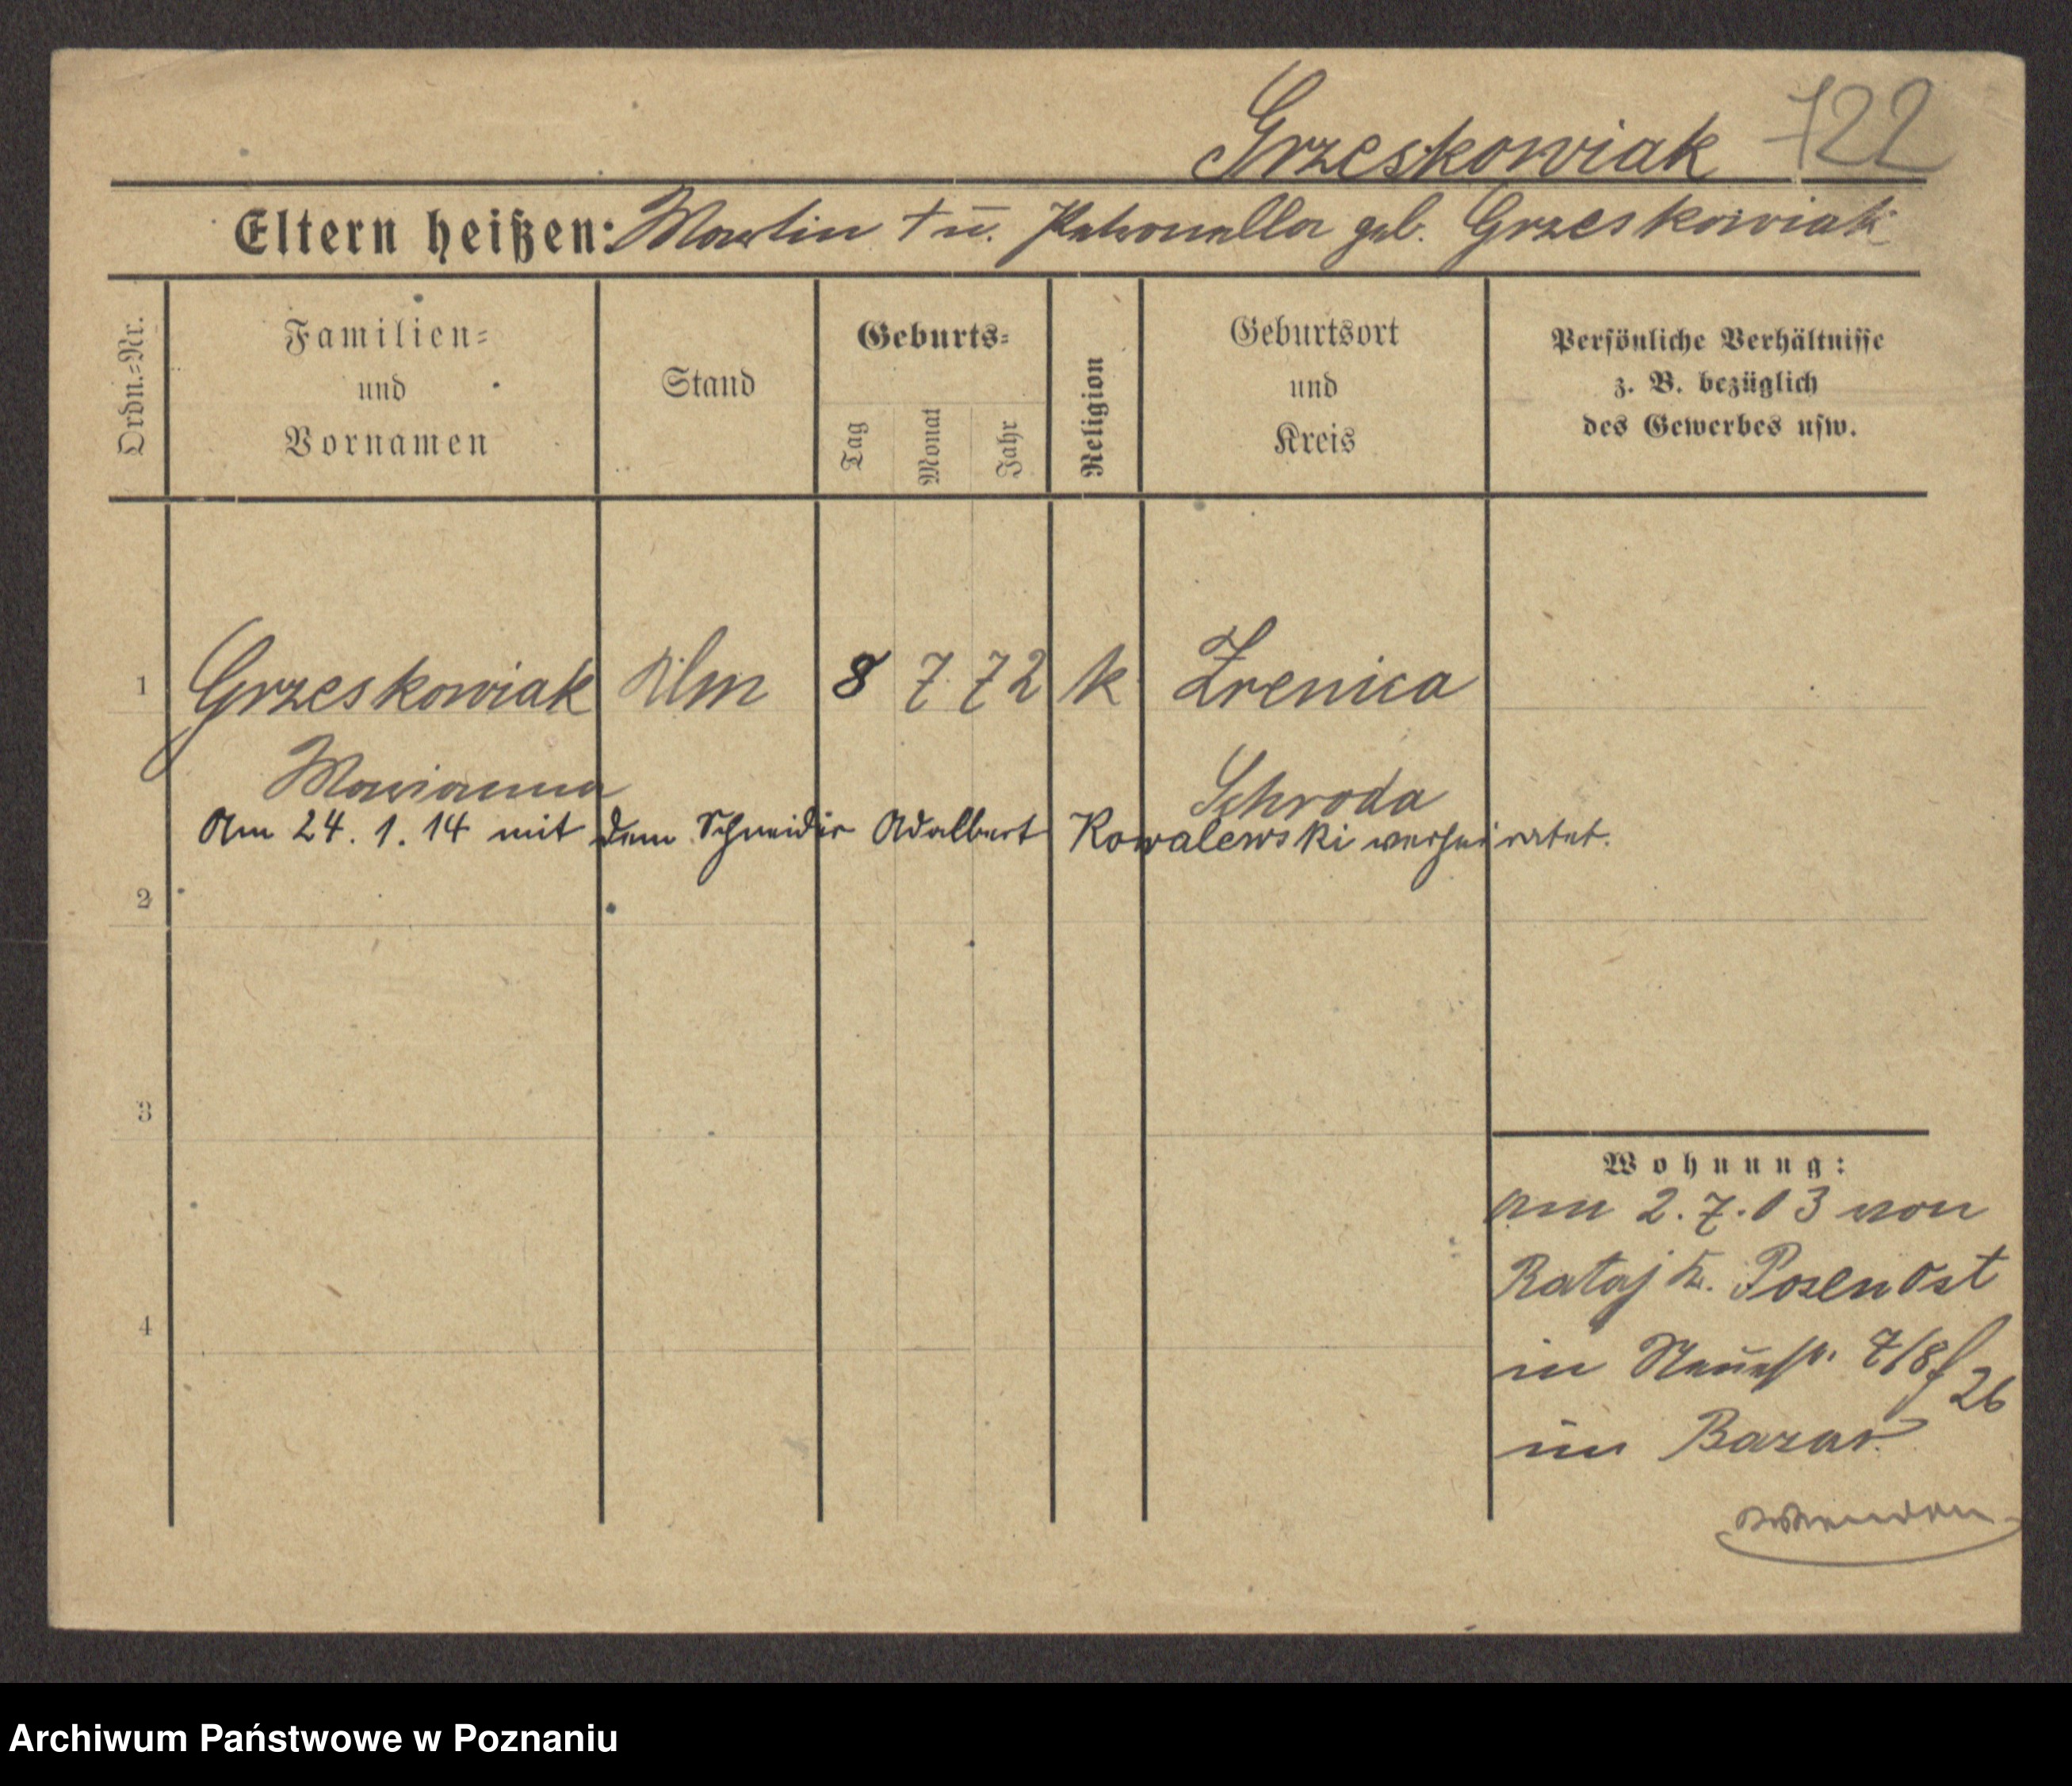 Grzeskowiak 122
Eltern heißen: Martin † u. Petronella geb. Grzeskowiak
Ordn.=Nr.
Familien=
und
Vornamen
Stand
Geburts=
Tag
Monat
Jahr
Religion
Geburtsort
und
Kreis
Persönliche Verhältnisse
z. B. bezüglich
des Gewerbes usw.
1 Grzeskowiak 8 7 72 k Zrenica
Marianna Schroda
Am 24. 1. 14 mit dem Schneider Adalbert Kowalewski verheiratet.
2
3
4
Wohnung:
am 2.7.03 von
Rataj K. Posen Ost
in 7/8
26
im Bazar
Archiwum Państwowe w Poznaniu